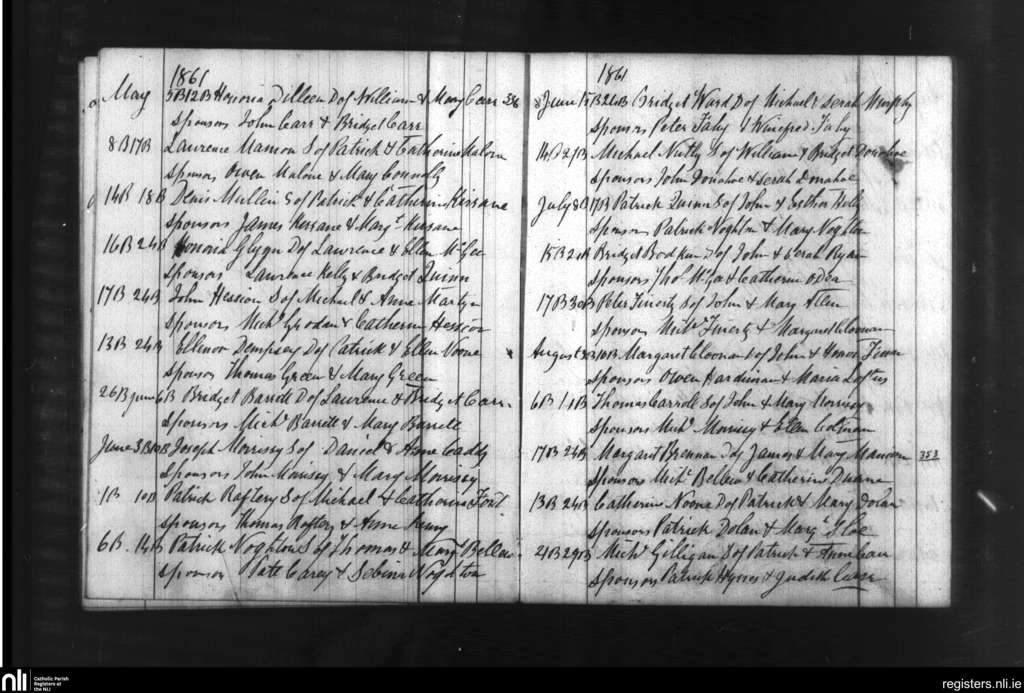 1861
May 5B12B Honoria Dilleen D of William & Mary Carr 336
Sponsors John Carr & Bridget Carr
8B17B Laurence Mannion S of Patrick & Catherine Malone
Sponsors Owen Malone & Mary Connolly
14B 18B Denis Mullin S of Patrick & Catherine Kissane
Sponsors James Kissane & Margt Kissane
16B 24B Honoria Glynn D of Lawrence & Ellen McGee
Sponsors Lawrence Kelly & Bridget Quinn
17B 24B John Hession S of Michael & Anne Martyn
Sponsors Michl & Catherine Hession
13B 24B Ellenor Dempsey D of Patrick & Ellen Noone
Sponsor Thomas Green & Mary Green
26B June 6B Bridget Barrett D of Lawrence & Bridget Carr
Sponsors Michl Barrett & Mary Barrett
June 3B10B Joseph Morrissy S of Daniel & Anne Caddy
Sponsors John Morrissy & Mary Morrissy
1B 10B Patrick Raftery S of Michael & Catherine Ford
Sponsors Thomas Raftery & Anne
6B 14B Patrick Noghton S of Thomas & Margt Bellew
Sponsor Patt Carey & Sebina Noghton
1861
June B21B Bridget Ward D of Michael & Serah Murphy
Sponsors Peter Fahy & Winefred Fahy
14B 21B Michael Nutty S of William & Bridget Donohoe
Sponsors John Donohoe & Serah Donahoe
July 8B 17B Patrick Quinn S of John & Esther Kelly
Sponsors Patrick Noghton & Mary Noghton
15B 21B Bridget Bodkin D of John & Serah Ryan
Sponsors Thos & Catherine ODea
17B30B Peter Finerty S of John & Mary Allen
Sponsors Michl Finerty & Margaret Cloonan
August 3B10B Margaret Cloonan D of John & Honor
Sponsors Owen Hardiman & Maria Loftus
6B 11B Thomas Carroll S of John & Mary Morrissy
Sponsors Michl Morrissy & Ellen Colman
17B 24B Margaret Brennan D of James & Mary Mannion 353
Sponsors Michl Bellew & Catherine Duane
13B 24B Catherine Noone D of Patrick & Mary Dolan
Sponsors Patrick Dolan & Margt
21B29B Michl Gilligan S of Patrick & Anne
Sponsors Patrick Hynes & Judith
nli
Catholic Parish
Registers at
the NLI
registers.nli.ie